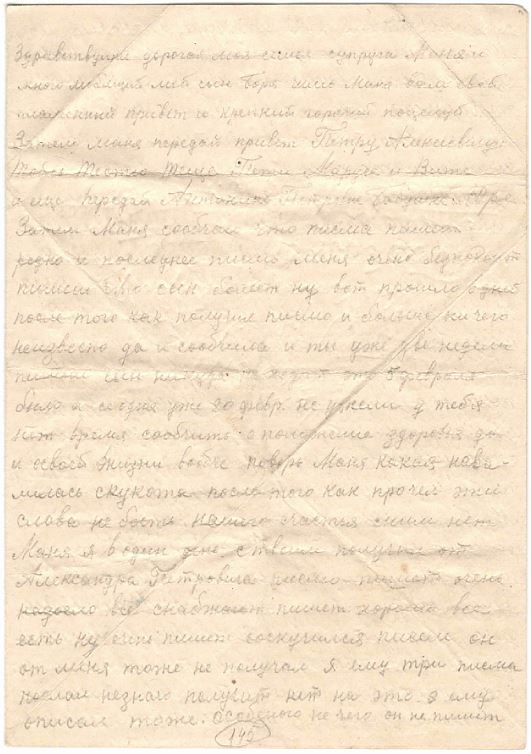 Здравствуйте дорогая моя семья супруга Маня и
много любящий мой сын Боря шлю Маня вам свой
пламенный привет и крепкий горячий поцелуй
Затем Маня передай привет Петру Алексеевичу
Тесю Теще Пете Марусе и Вите
и еще передай Антонине Петровне бабушке
Затем Маня сообчаю что писма пишеш
редко и последнее писмо меня очень безпокоит
пишеш что сын болеет ну вот прошло
после того как получил писмо и больше ничего
неизвесно да и сообчила и ты уже две недели
пишеш сын никуда не ходит это 5 февраля
было а сегодня уже 20 февр. не ужели у тебя
нет время сообчить о положение здоровья да
и о своей жизни вобче поверь Маня какая нава-
лилась скукота после того как прочел эти
слова не быть нашего счастья сыни нет
Маня я в один день с твоим получил от
Александра Петровича писмо пишет очень
надоело все снабжают пишет хорошо все
есть ну очень пишет соскучился писем он
от меня тоже не получал я ему три писма
послал незнаю получит нет на это я ему
описал тоже. Особеного не чего он не пишет
142